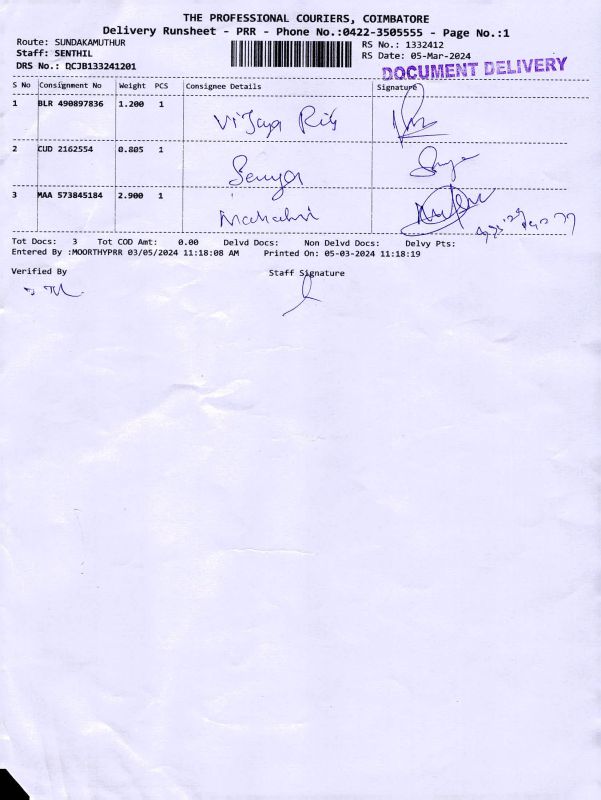 THE PROFESSIONAL COURIERS, COIMBATORE
Delivery Runsheet - PRR - Phone No.:0422-3505555 - Page No.:1
Route: SUNDAKAMUTHUR
Staff: SENTHIL
DRS No.: QCJB133241201
RS No.: 1332412
RS Date: 05-Mar-2024
DOCUMENT DELIVERY
S No Consignment No Weight PCS Consignee Details Signature
1 BLR 490897836 1.200 1 Vijaya
2 CUD 2162554 0.805 1
3 MAA 573845184 2.900 1
Tot Docs: 3 Tot COD Amt: 0.00 Delvd Docs: Non Delvd Docs: Delvy Pts:
Entered By :MOORTHYPRR 03/05/2024 11:18:08 AM Printed On: 05-03-2024 11:18:19
Verified By Staff Signature